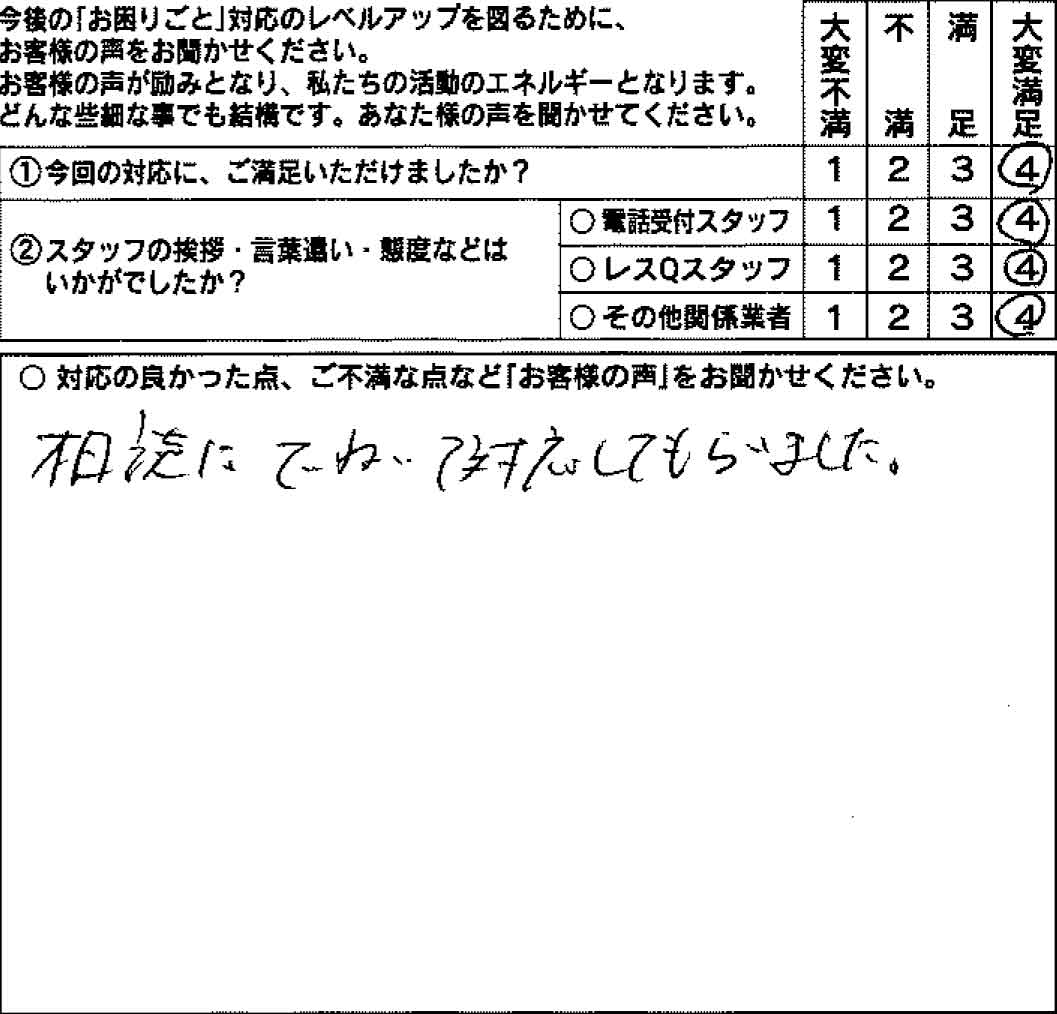 今後の「お困りごと」対応のレベルアップを図るために、
お客様の声をお聞かせください。
お客様の声が励みとなり、私たちの活動のエネルギーとなります。
どんな些細な事でも結構です。あなた様の声を聞かせてください。
大変不満 不満 満足 大変満足
①今回の対応に、ご満足いただけましたか？ 1 2 3 4
②スタッフの挨拶・言葉遣い・態度などは
いかがでしたか？
○電話受付スタッフ 1 2 3 4
○レスQスタッフ 1 2 3 4
○その他関係業者 1 2 3 4
○ 対応の良かった点、ご不満な点など「お客様の声」をお聞かせください。
相談に ていねいに対応してもらいました。